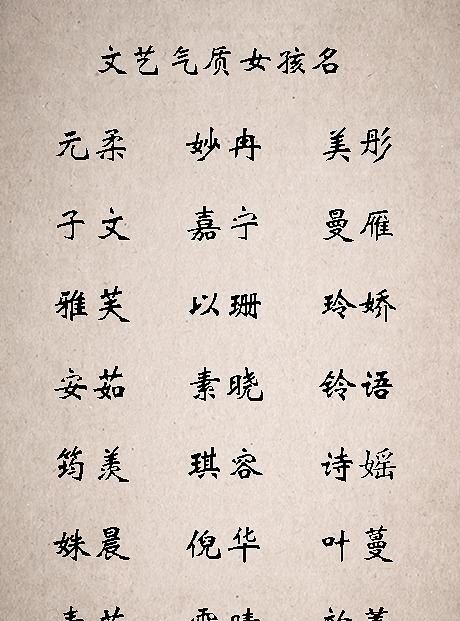 文艺气质女孩名
元柔 妙冉 美彤
子文 嘉宁 曼雁
雅芙 以珊 玲娇
安茹 素晓 铃语
筠羡 琪容 诗媱
姝晨 倪华 叶蔓